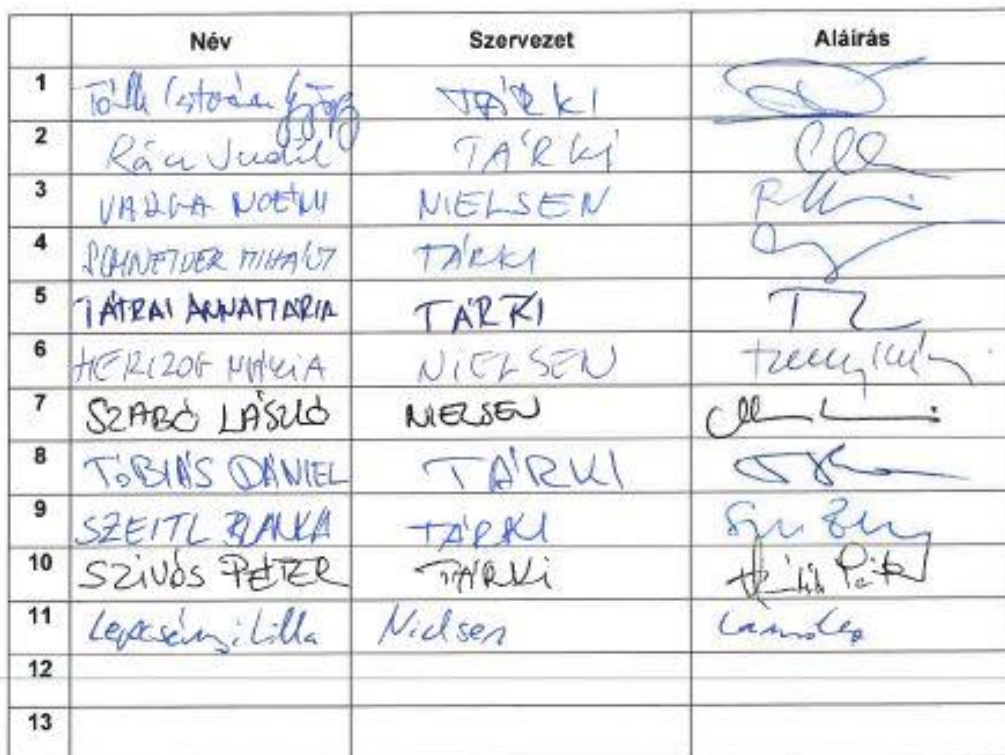 Név Szervezet Aláírás
1 Tóth István György TÁRKI
2 Rácz Judit TÁRKI
3 VARGA NOÉMI NIELSEN
4 SCHNEIDER MIHÁLY TÁRKI
5 TÁTRAI ANNAMÁRIA TÁRKI
6 HERCZOG MÁRIA NIELSEN
7 SZABÓ LÁSZLÓ NIELSEN
8 TÓBIÁS DÁNIEL TÁRKI
9 SZEITL BLANKA TÁRKI
10 SZIVÓS PÉTER TÁRKI
11 Lilla Nielsen
12
13